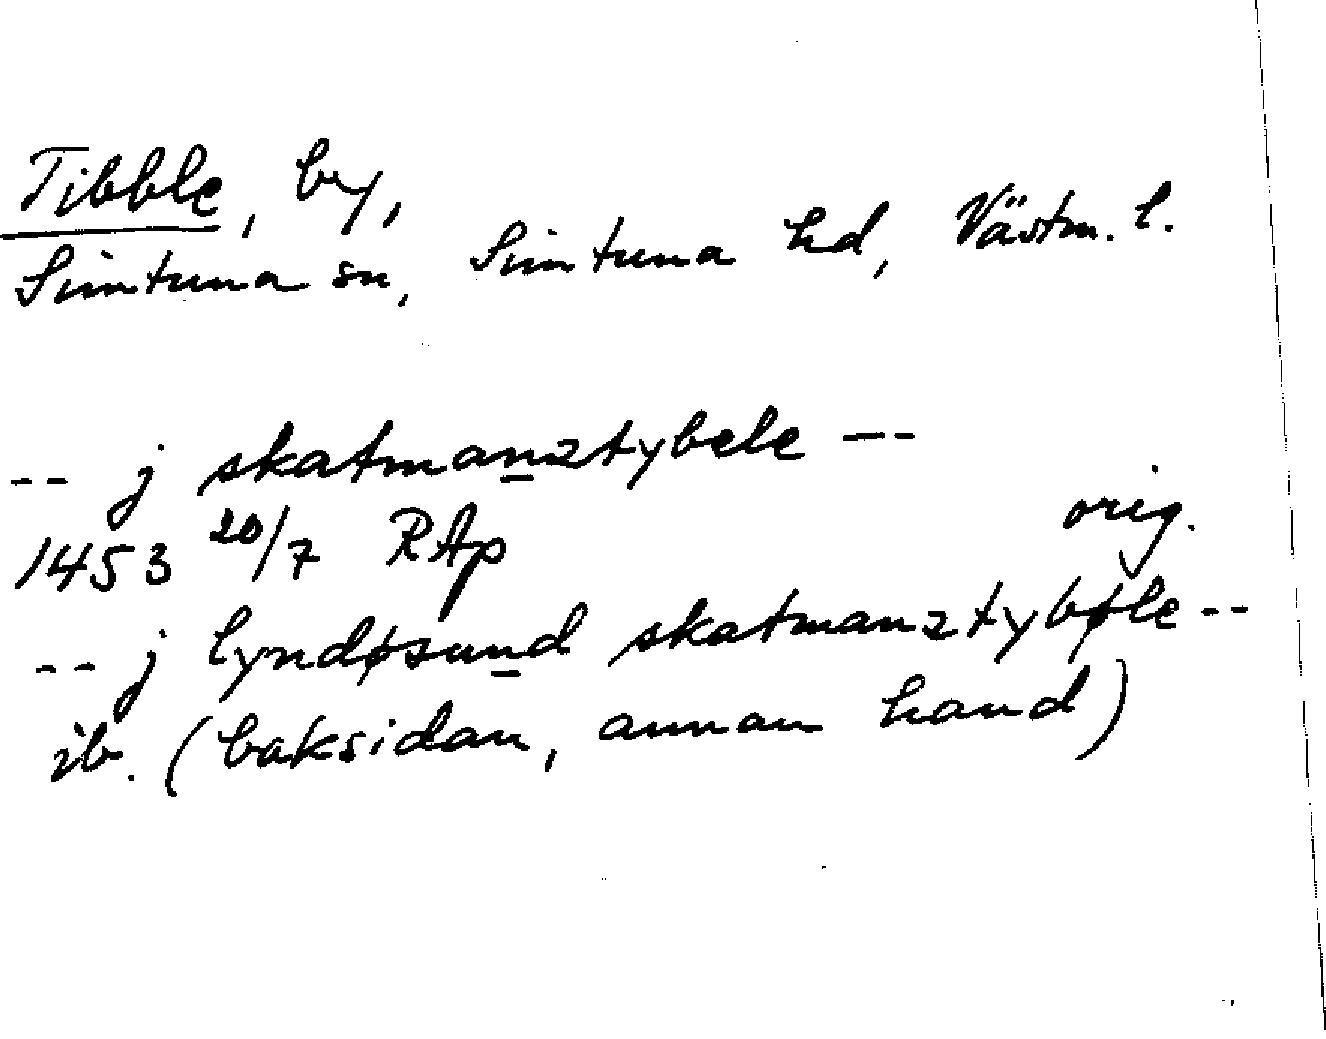 Tibble, by,
Simtuna sn, Simtuna hd, Västm. l.
-- j skatmanztybele --
1453 20/7 RAp orig.
-- j lyndøsund skatmanztybøle --
ib. (baksidan, annan hand)